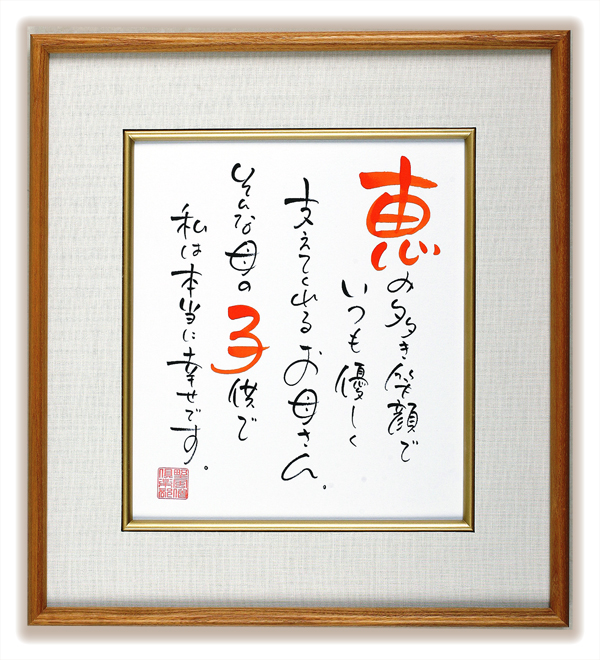 恵み多き笑顔で
いつも優しく
支えてくれるお母さん。
そんな母の子供で
私は本当に幸せです。